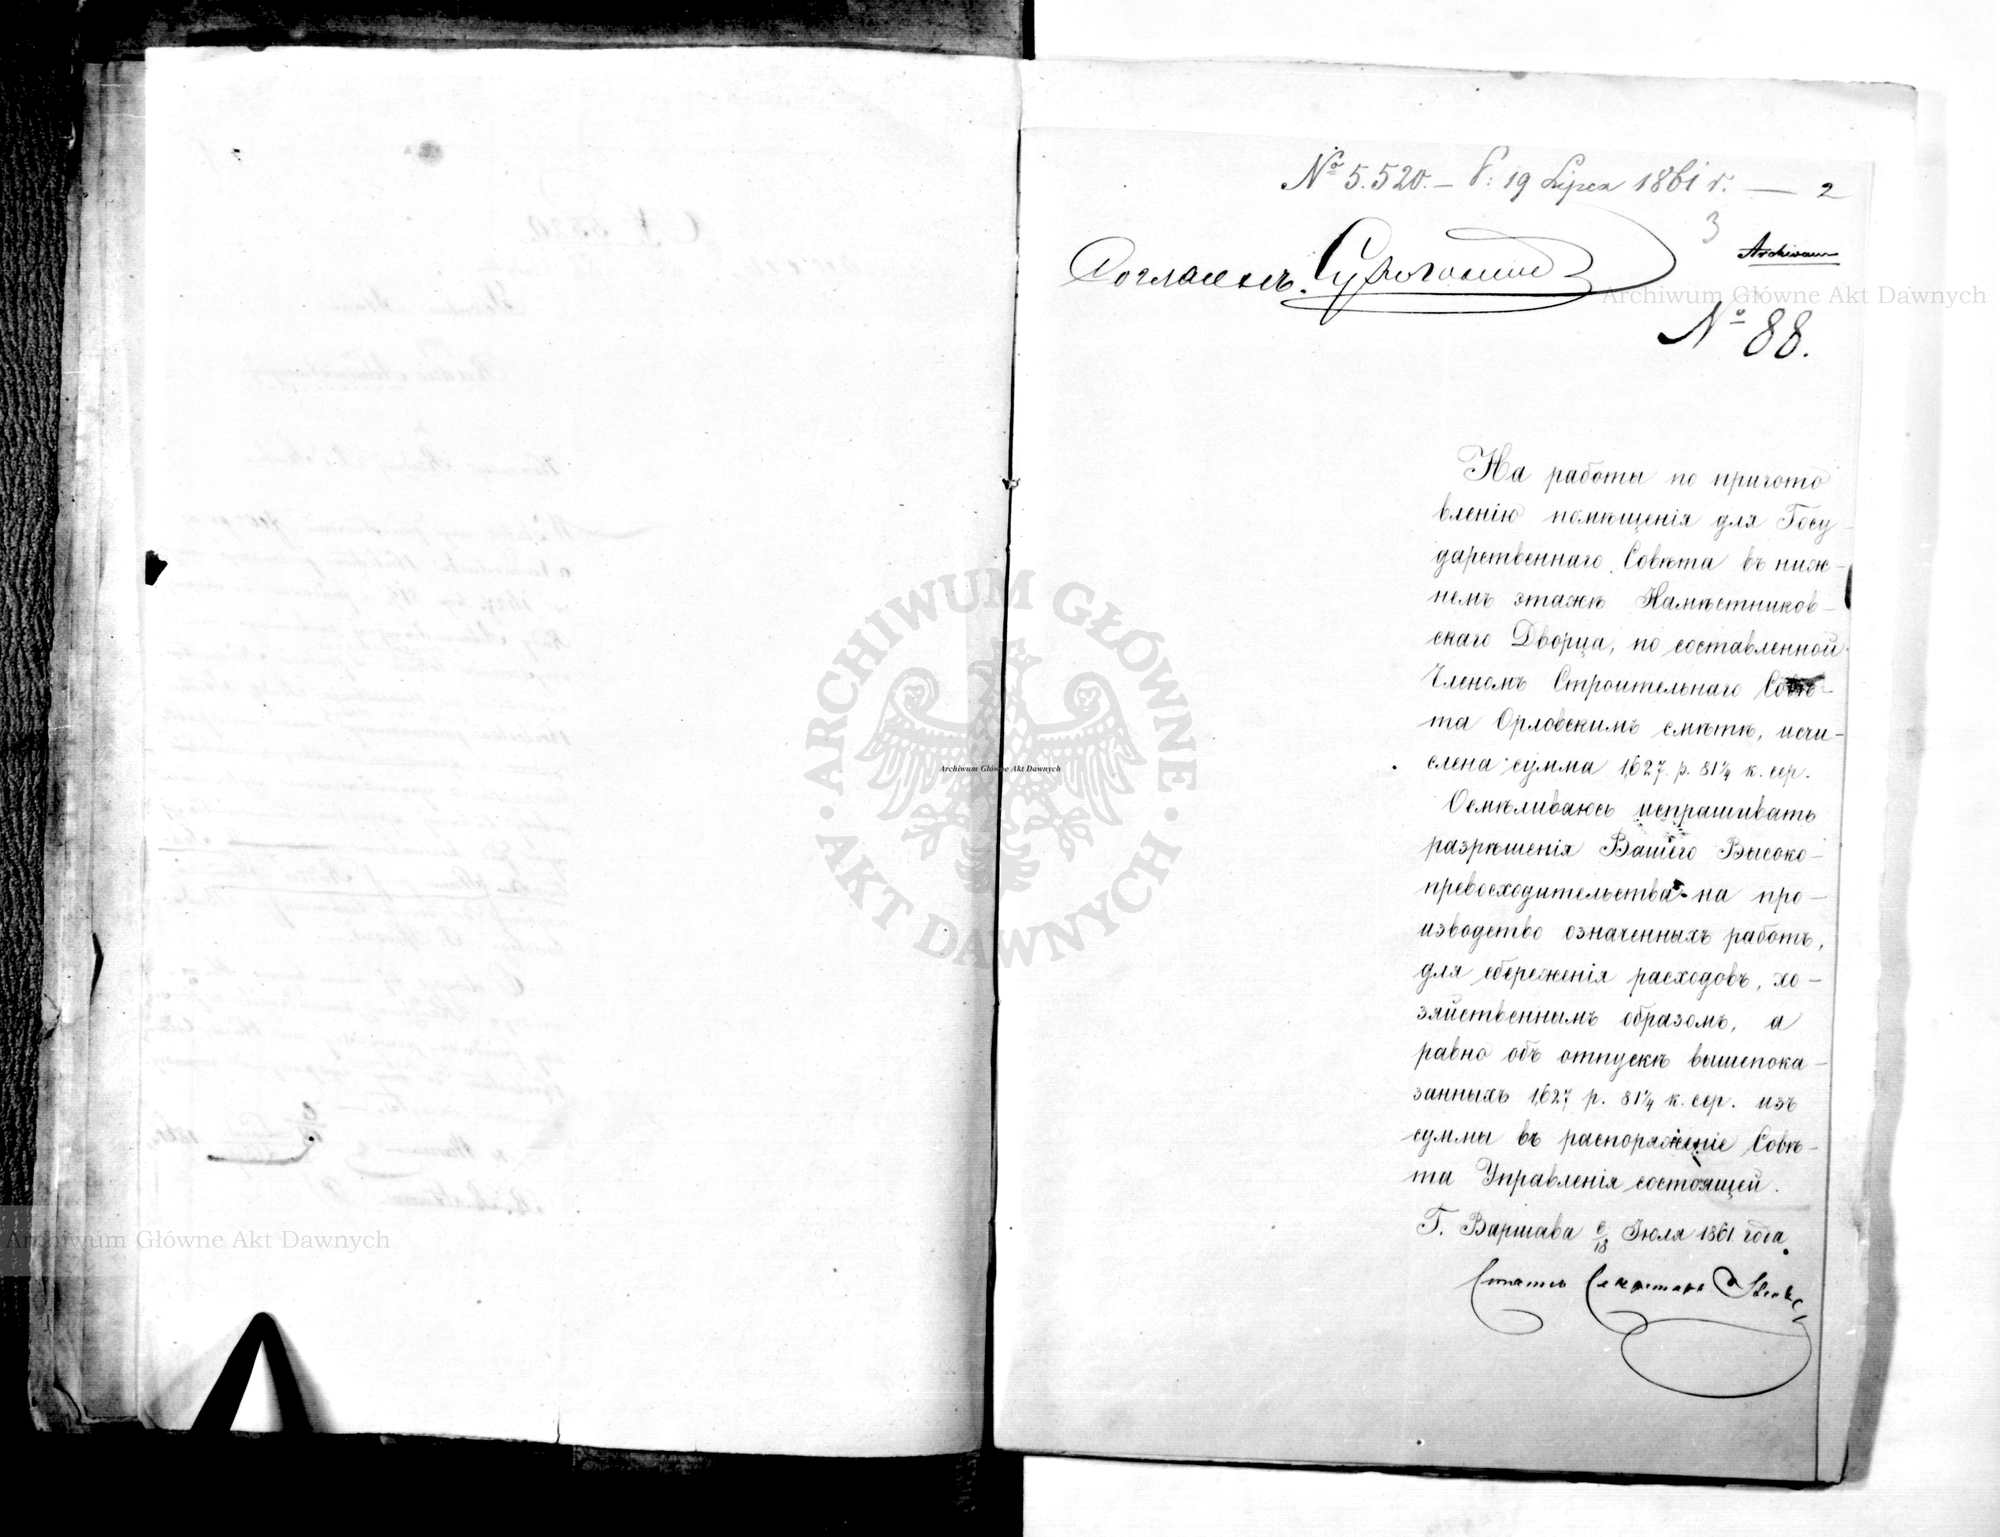 № 5.520. – 19 Lipca 1861 r. — 2
3
Archiwum
Согласенъ. Сухозанетъ
№ 88.
На работы по пригото
вленію помѣщенія для Госу-
дарственнаго Совѣта въ ниж-
немъ этажѣ Намѣстников-
скаго Дворца, по составленной
Членомъ Строительнаго Совѣ-
та Орловскимъ смѣтѣ, исчи-
слена сумма 1,627. р. 81¼ к. сер.
Осмѣливаюсь испрашивать
разрѣшенія Вашего Высоко-
превосходительства на про-
изводство означенныхъ работъ,
для сбереженія расходовъ, хо-
зяйственнымъ образомъ, а
равно объ отпускѣ вышепока-
занныхъ 1,627 р. 81¼ к. сер. изъ
суммы въ распоряженіе Совѣ-
та Управленія состоящей.
Г. Варшава 6/18 Іюля 1861 года.
Статсъ Секретарь
Archiwum Główne Akt Dawnych
ARCHIWUM GŁÓWNE · AKT DAWNYCH ·
Archiwum Główne Akt Dawnych
Archiwum Główne Akt Dawnych